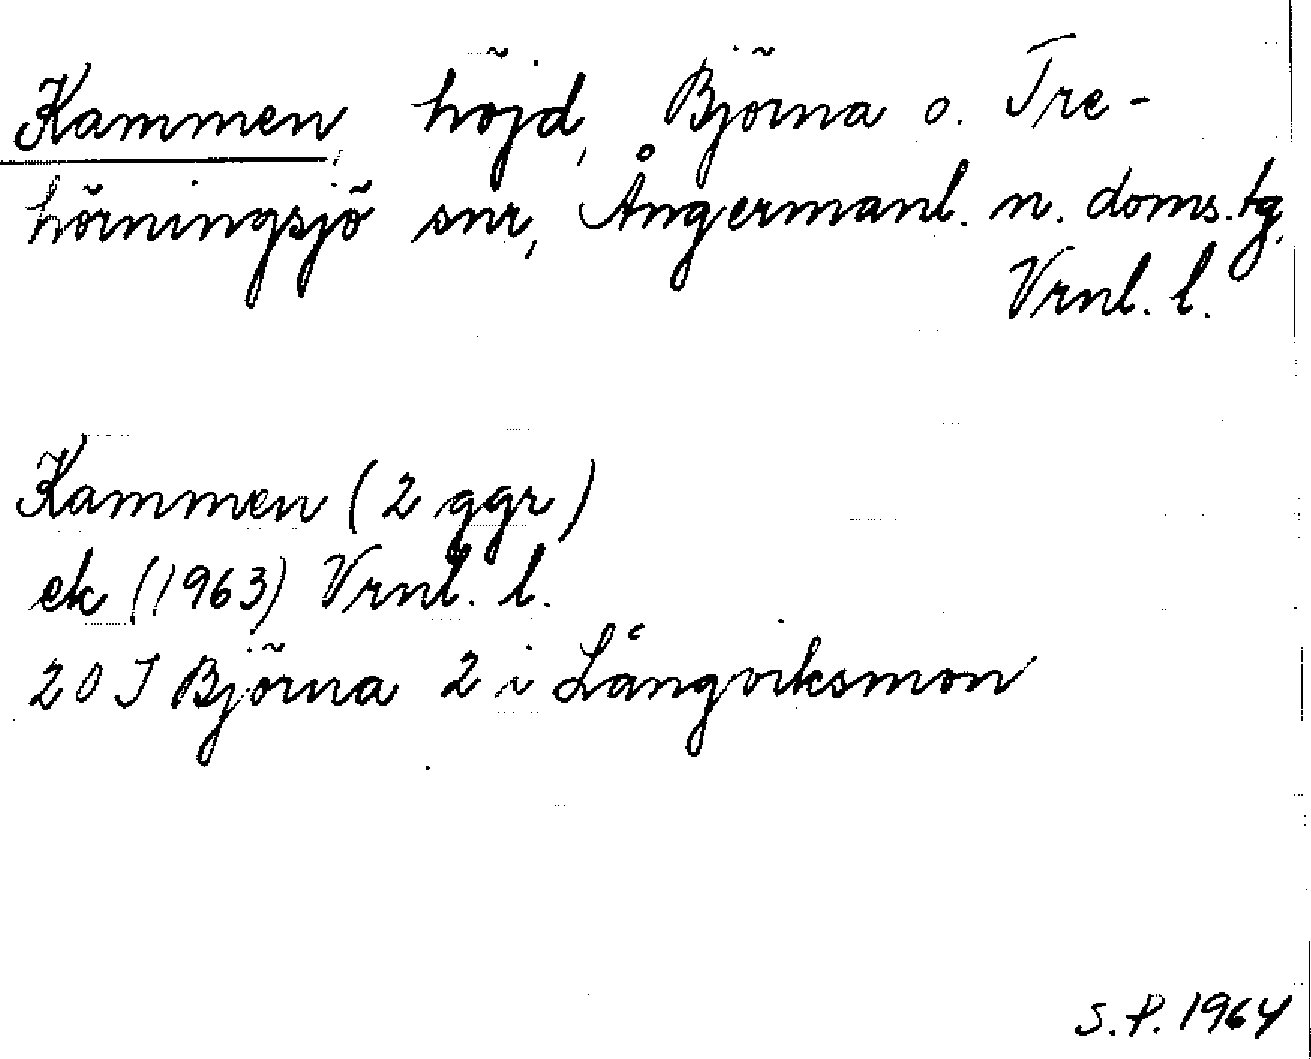 Kammen, höjd, Björna o. Tre-
hörningsjö snr, Ångermanl. n. doms.tg,
Vrnl. l.
Kammen (2 ggr)
ek (1963) Vrnl. l.
20 J Björna 2 i Långviksmon
S.P. 1964